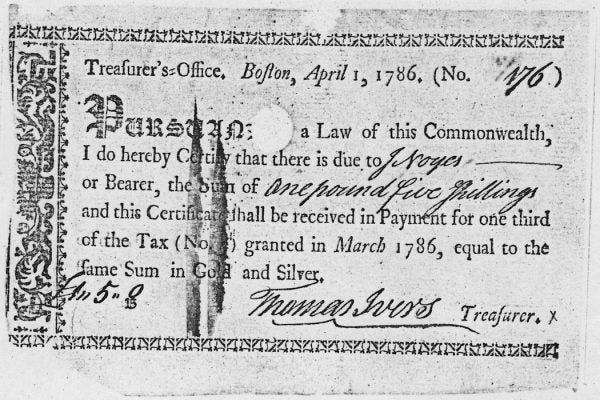 Treaſurer's-Office. Boſton, April 1, 1786. (No. 176)
PURSUAN a Law of this Commonwealth,
I do hereby Certify that there is due to J Noyes
or Bearer, the Sum of One pound five Shillings
and this Certificate ſhall be received in Payment for one third
of the Tax (No. 5) granted in March 1786, equal to the
ſame Sum in Gold and Silver.
5 " 0
Thomas Ivers Treaſurer.